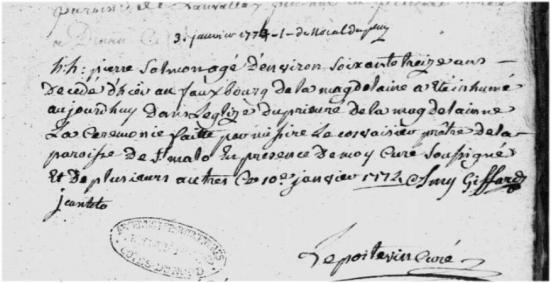 a Dinan
3. janvier 1774 -1-
h:h: pierre Salmon agé d'Environ Soixante treize ans
Decedé d'hier au fauxbourg de la magdelaine a eté inhumé
aujourdhuy Dans Leglize du prieuré de la magdelainne
La Ceremonie faitte par missire Le corvaisier prêtre de la
paroisse de St malo En presence De moy Curé Soussigné
Et De plusieurs autres Ce 10e janvier 1774 Giffard
Lepoitevin Curé